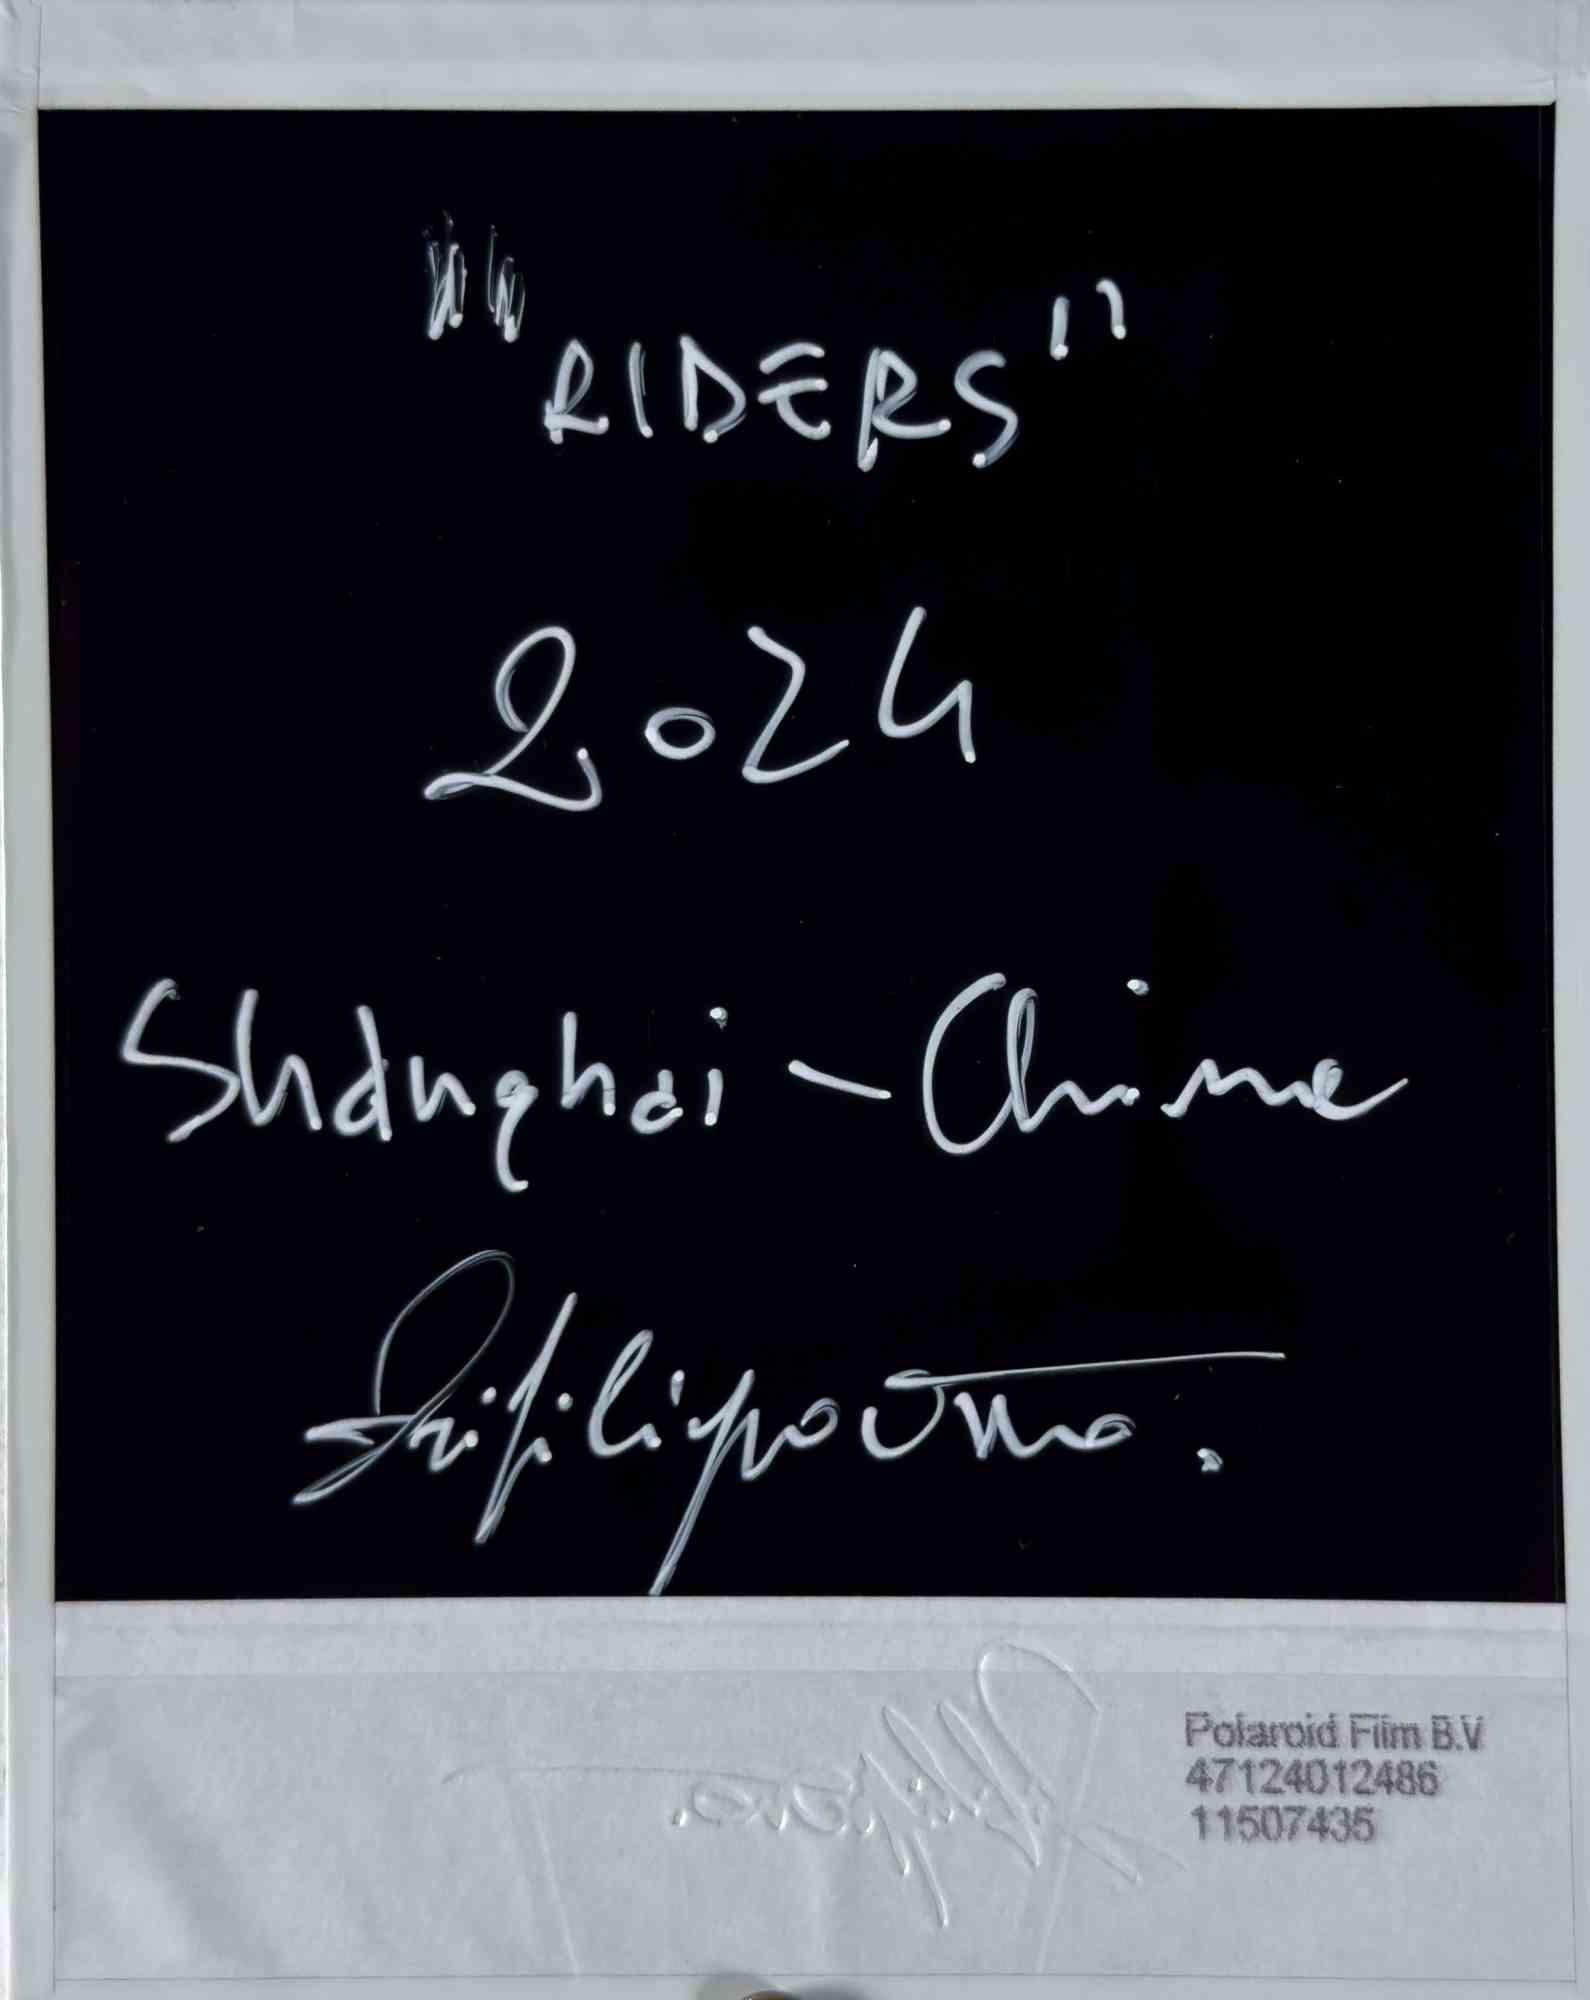 "RIDERS"
2024
Shanghai - Chine
Polaroid Film B.V
47124012486
11507435